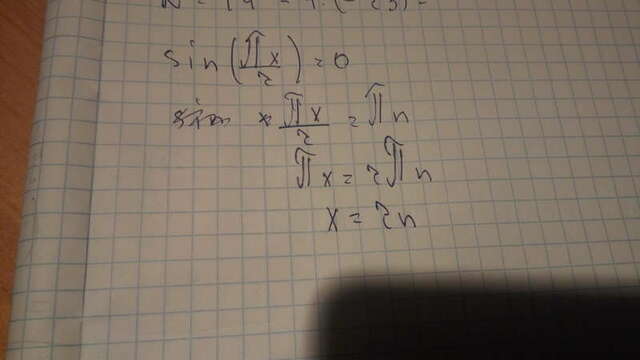 sin(πx/2) = 0
πx/2 = πn
πx = 2πn
x = 2n